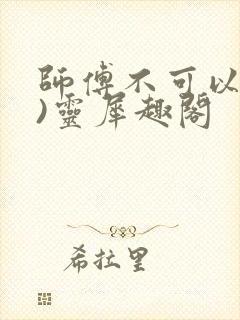 師傅不可以
)靈犀趣閣
希拉里